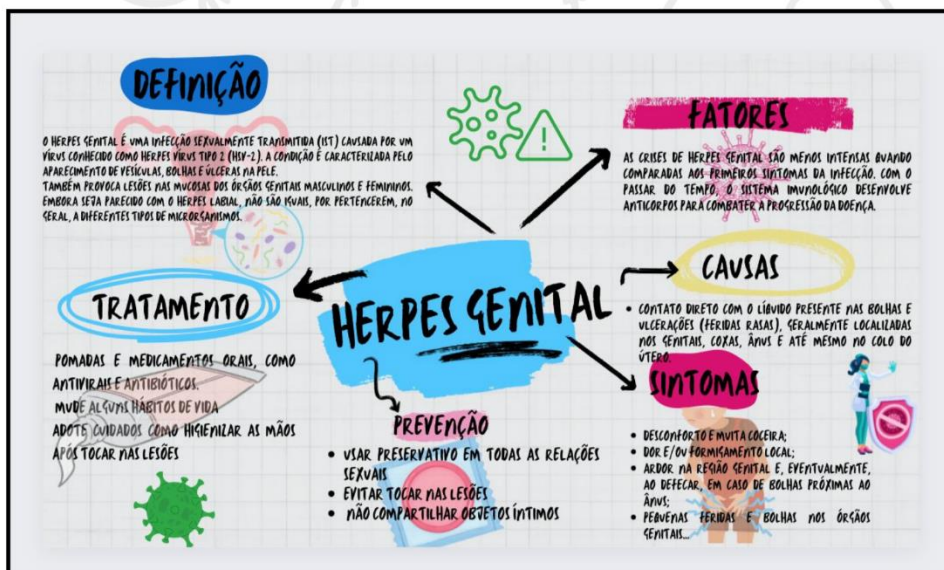 DEFINIÇÃO
O HERPES GENITAL É UMA INFECÇÃO SEXUALMENTE TRANSMITIDA (IST) CAUSADA POR UM
VÍRUS CONHECIDO COMO HERPES VÍRUS TIPO 2 (HSV-2). A CONDIÇÃO É CARACTERIZADA PELO
APARECIMENTO DE VESÍCULAS, BOLHAS E ÚLCERAS NA PELE.
TAMBÉM PROVOCA LESÕES NAS MUCOSAS DOS ÓRGÃOS GENITAIS MASCULINOS E FEMININOS.
EMBORA SEJA PARECIDO COM O HERPES LABIAL, NÃO SÃO IGUAIS, POR PERTENCEREM, NO
GERAL, A DIFERENTES TIPOS DE MICRORGANISMOS.
FATORES
AS CRISES DE HERPES GENITAL SÃO MENOS INTENSAS QUANDO
COMPARADAS AOS PRIMEIROS SINTOMAS DA INFECÇÃO. COM O
PASSAR DO TEMPO, O SISTEMA IMUNOLÓGICO DESENVOLVE
ANTICORPOS PARA COMBATER A PROGRESSÃO DA DOENÇA.
HERPES GENITAL
CAUSAS
• CONTATO DIRETO COM O LÍQUIDO PRESENTE NAS BOLHAS E
ULCERAÇÕES (FERIDAS RASAS), GERALMENTE LOCALIZADAS
NOS GENITAIS, COXAS, ÂNUS E ATÉ MESMO NO COLO DO
ÚTERO.
TRATAMENTO
POMADAS E MEDICAMENTOS ORAIS, COMO
ANTIVIRAIS E ANTIBIÓTICOS.
MUDE ALGUNS HÁBITOS DE VIDA
ADOTE CUIDADOS COMO HIGIENIZAR AS MÃOS
APÓS TOCAR NAS LESÕES
PREVENÇÃO
• USAR PRESERVATIVO EM TODAS AS RELAÇÕES
SEXUAIS
• EVITAR TOCAR NAS LESÕES
• NÃO COMPARTILHAR OBJETOS ÍNTIMOS
SINTOMAS
• DESCONFORTO E MUITA COCEIRA;
• DOR E/OU FORMIGAMENTO LOCAL;
• ARDOR NA REGIÃO GENITAL E, EVENTUALMENTE,
AO DEFECAR, EM CASO DE BOLHAS PRÓXIMAS AO
ÂNUS;
• PEQUENAS FERIDAS E BOLHAS NOS ÓRGÃOS
GENITAIS...